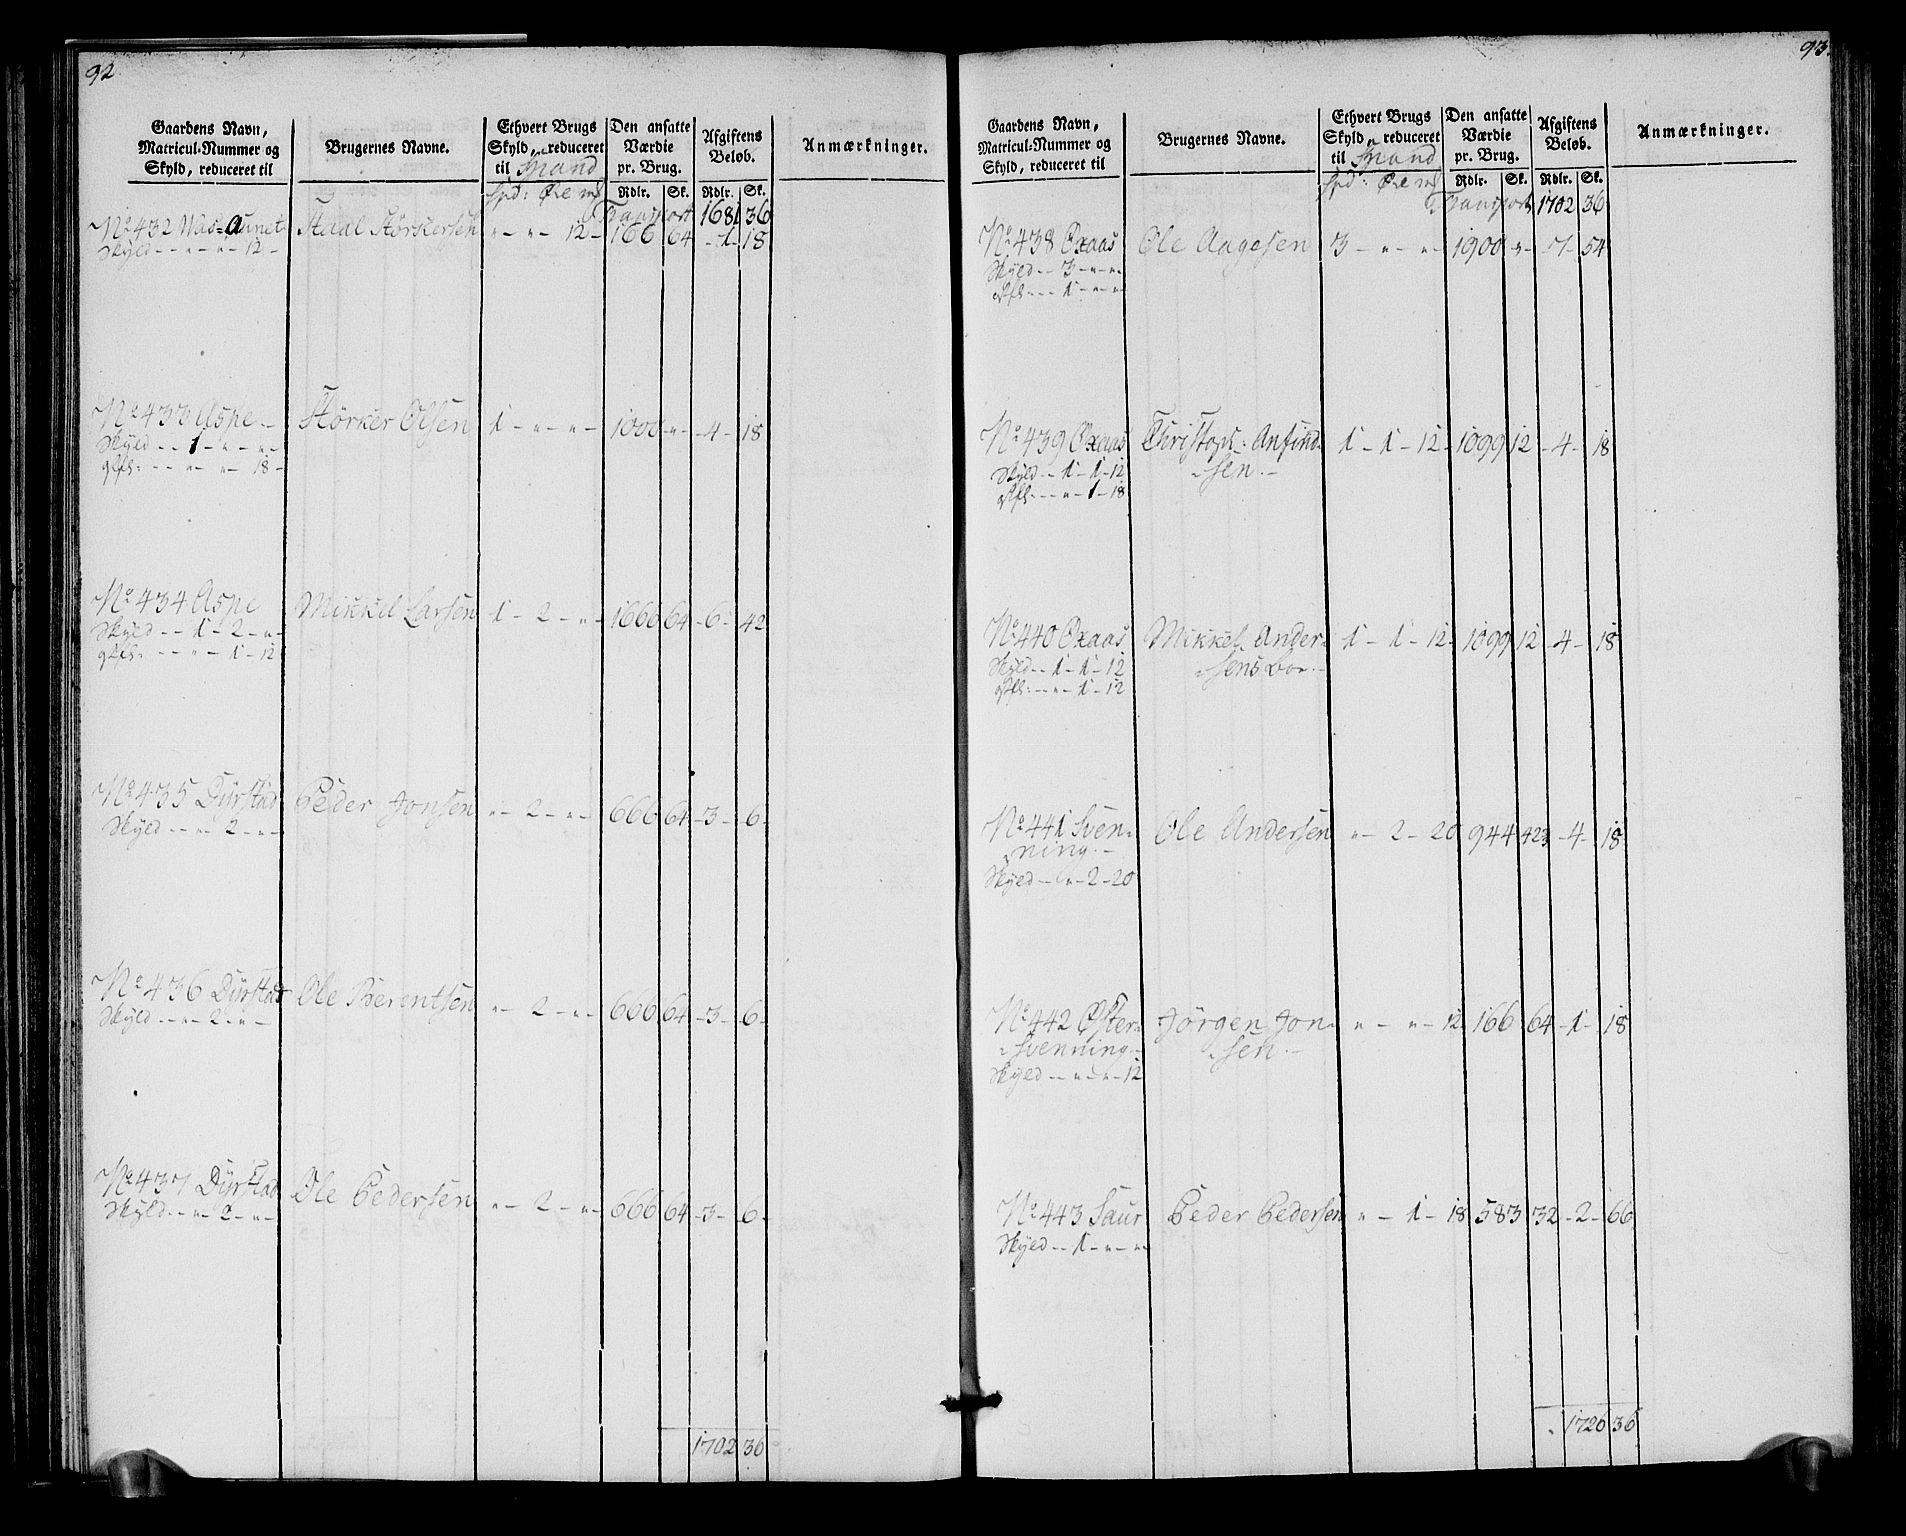 92
Gaardens Navn,
Matricul-Nummer og
Skyld, reduceret til
Brugernes Navne.
Ethvert Brugs
Skyld, reduceret
til Spand
Spd: Øre
Den ansatte
Værdie
pr. Brug.
Rdlr. Sk.
Afgiftens
Beløb.
Rdlr. Sk.
Anmærkninger.
Transport 1681 36
No 432 Aunet Skyld - " - " - 12 -
Størkersen " - " - 12 - 166 64 - 1 - 18
No 433 Aspe -
Skyld - - 1 - " - " -
- - - " - " - 18 -
Størker Olsen 1 - " - " - 1000 " - - 4 - 18
No 434 Aspe
Skyld - - 1 - 2 - " -
- - " - 1 - 12
Mikkel Larsen 1 - 2 - " - 1666 64 - 6 - 42
No 435 Dyrstad
Skyld - - " - 2 - " -
Peder Jonsen " - 2 - " - 666 64 - 3 - 6 -
No 436 Dyrstad
Skyld - - " - 2 - " -
Ole Berentsen " - 2 - " - 666 64 - 3 - 6 -
No 437 Dyrstad
Skyld - - " - 2 - " -
Ole Pedersen " - 2 - " - 666 64 - 3 - 6 -
1702 36
93.
Gaardens Navn,
Matricul-Nummer og
Skyld, reduceret til
Brugernes Navne.
Ethvert Brugs
Skyld, reduceret
til Spand
Spd: Øre
Den ansatte
Værdie
pr. Brug.
Rdlr. Sk.
Afgiftens
Beløb.
Rdlr. Sk.
Anmærkninger.
Transport 1702 36
No 438 Oxaas
Skyld - - 3 - " - "
- - - 1 - " - "
Ole Aagesen 3 - " - " - 1900 " - - 7 - 54
No 439 Oxaas
Skyld - - 1 - 1 - 12
- - - " - 1 - 18
Christoph: Anfind-
sen. - 1 - 1 - 12 - 1099 12 - 4 - 18
No 440 Oxaas
Skyld - - 1 - 1 - 12
- - " - 1 - 12
Mikkel Ander-
sens Boe. - 1 - 1 - 12 - 1099 12 - 4 - 18
No 441 Sven-
ning. -
Skyld - - " - 2 - 20
Ole Andersen " - 2 - 20 944 423 - 4 - 18
No 442 Øster-
Svenning. -
Skyld - - " - " - 12
Jörgen Jon-
sen. - " - " - 12 166 64 - 1 - 18
No 443 Saur
Skyld - - 1 - " - "
Peder Pedersen " - 1 - 18 583 32 - 2 - 66
1726 36